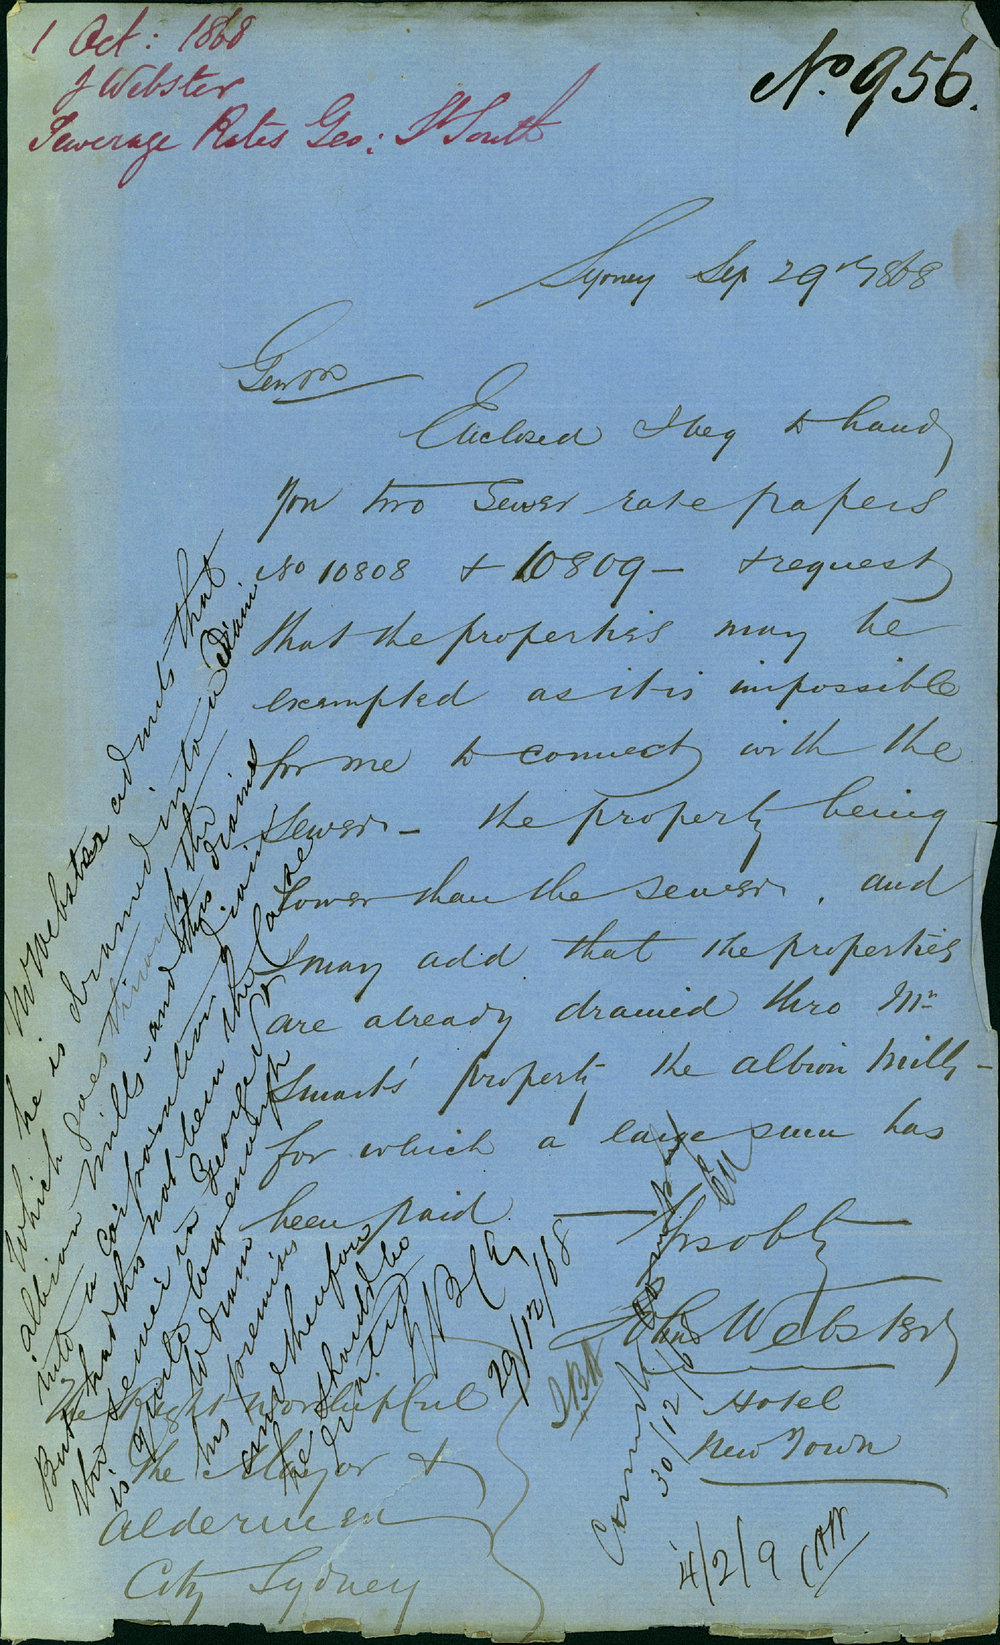 1 Oct: 1868
J Webster
Sewerage Rates Geo: St South
No. 956.
Sydney Sep 29th 1868
Gentn
Enclosed I beg to hand
you two Sewer rate papers
No 10808 + 10809 — + request
that the properties may be
exempted as it is impossible
for me to connect with the
Sewer — the property being
lower than the sewer, and
I may add that the properties
are already drained thro Mr
Smarts' property the albion Mills —
for which a large sum has
been paid —
Yrs obtly
John Webster
Hotel
New Town
The Right Worshipful
The Mayor &
Aldermen
City Sydney
Mr Webster admits that
which he is drained into a drain
albion Mills goes through the
into a corporation and this drains
But had this not been the case
the sewer in George St
is quite low enough
to drain
his premises
and therefore
he should be
29/12/68
30/12/68
4/2/9